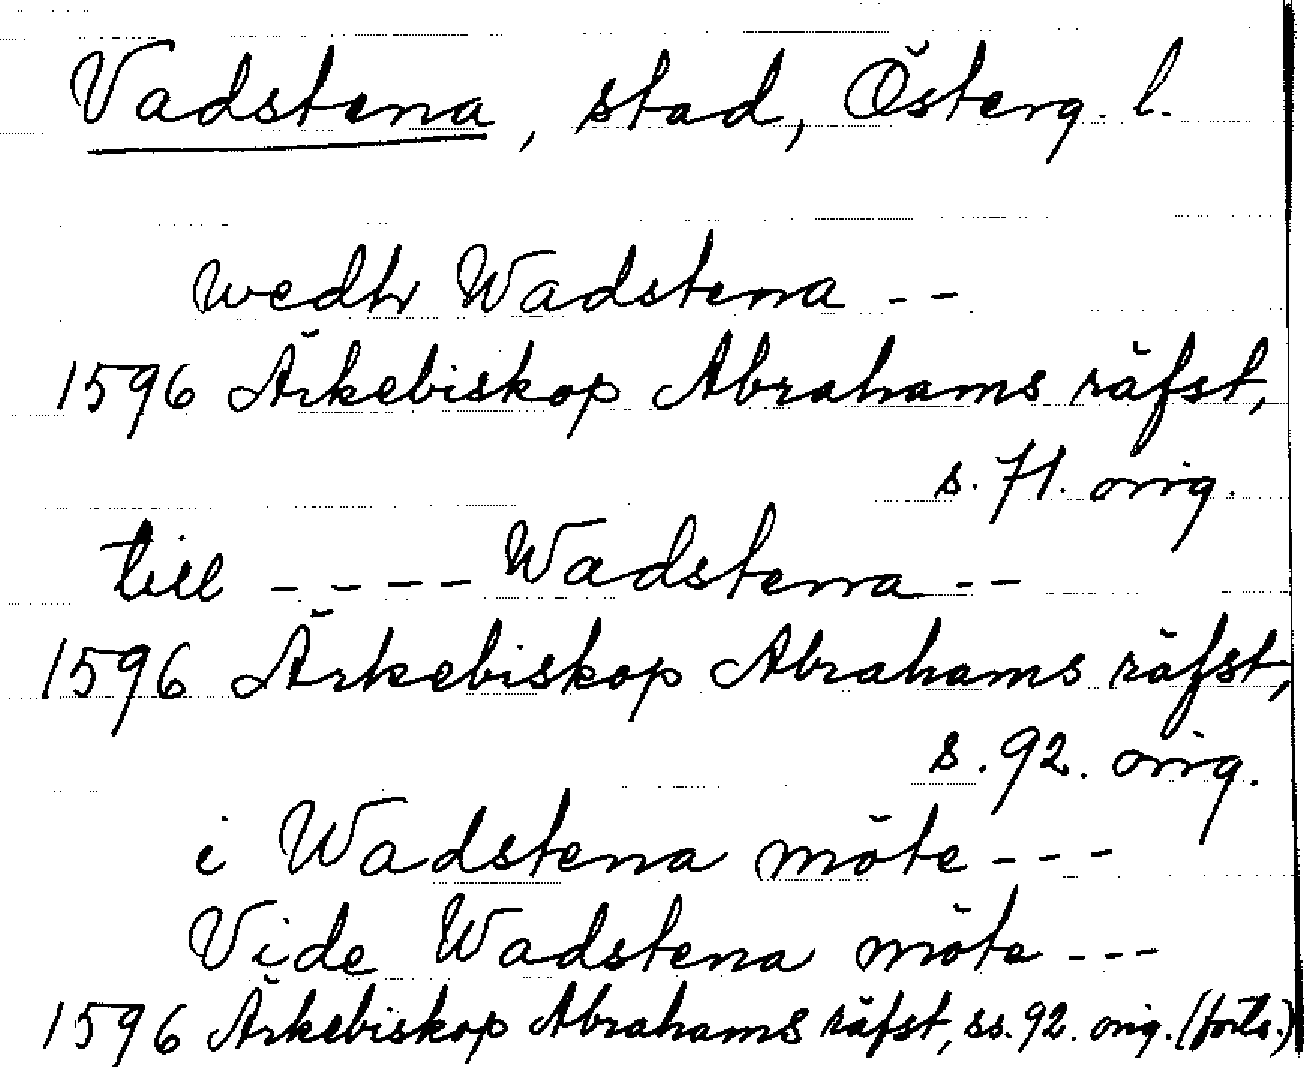 Vadstena, stad, Österg. l.
wedh Wadstena --
1596 Ärkebiskop Abrahams räfst,
s. 71. orig.
till ---- Wadstena --
1596 Ärkebiskop Abrahams räfst,
s. 92. orig.
i Wadstena möte ---
Vide Wadstena möte ---
1596 Ärkebiskop Abrahams räfst, ss. 92. orig. (forts.)